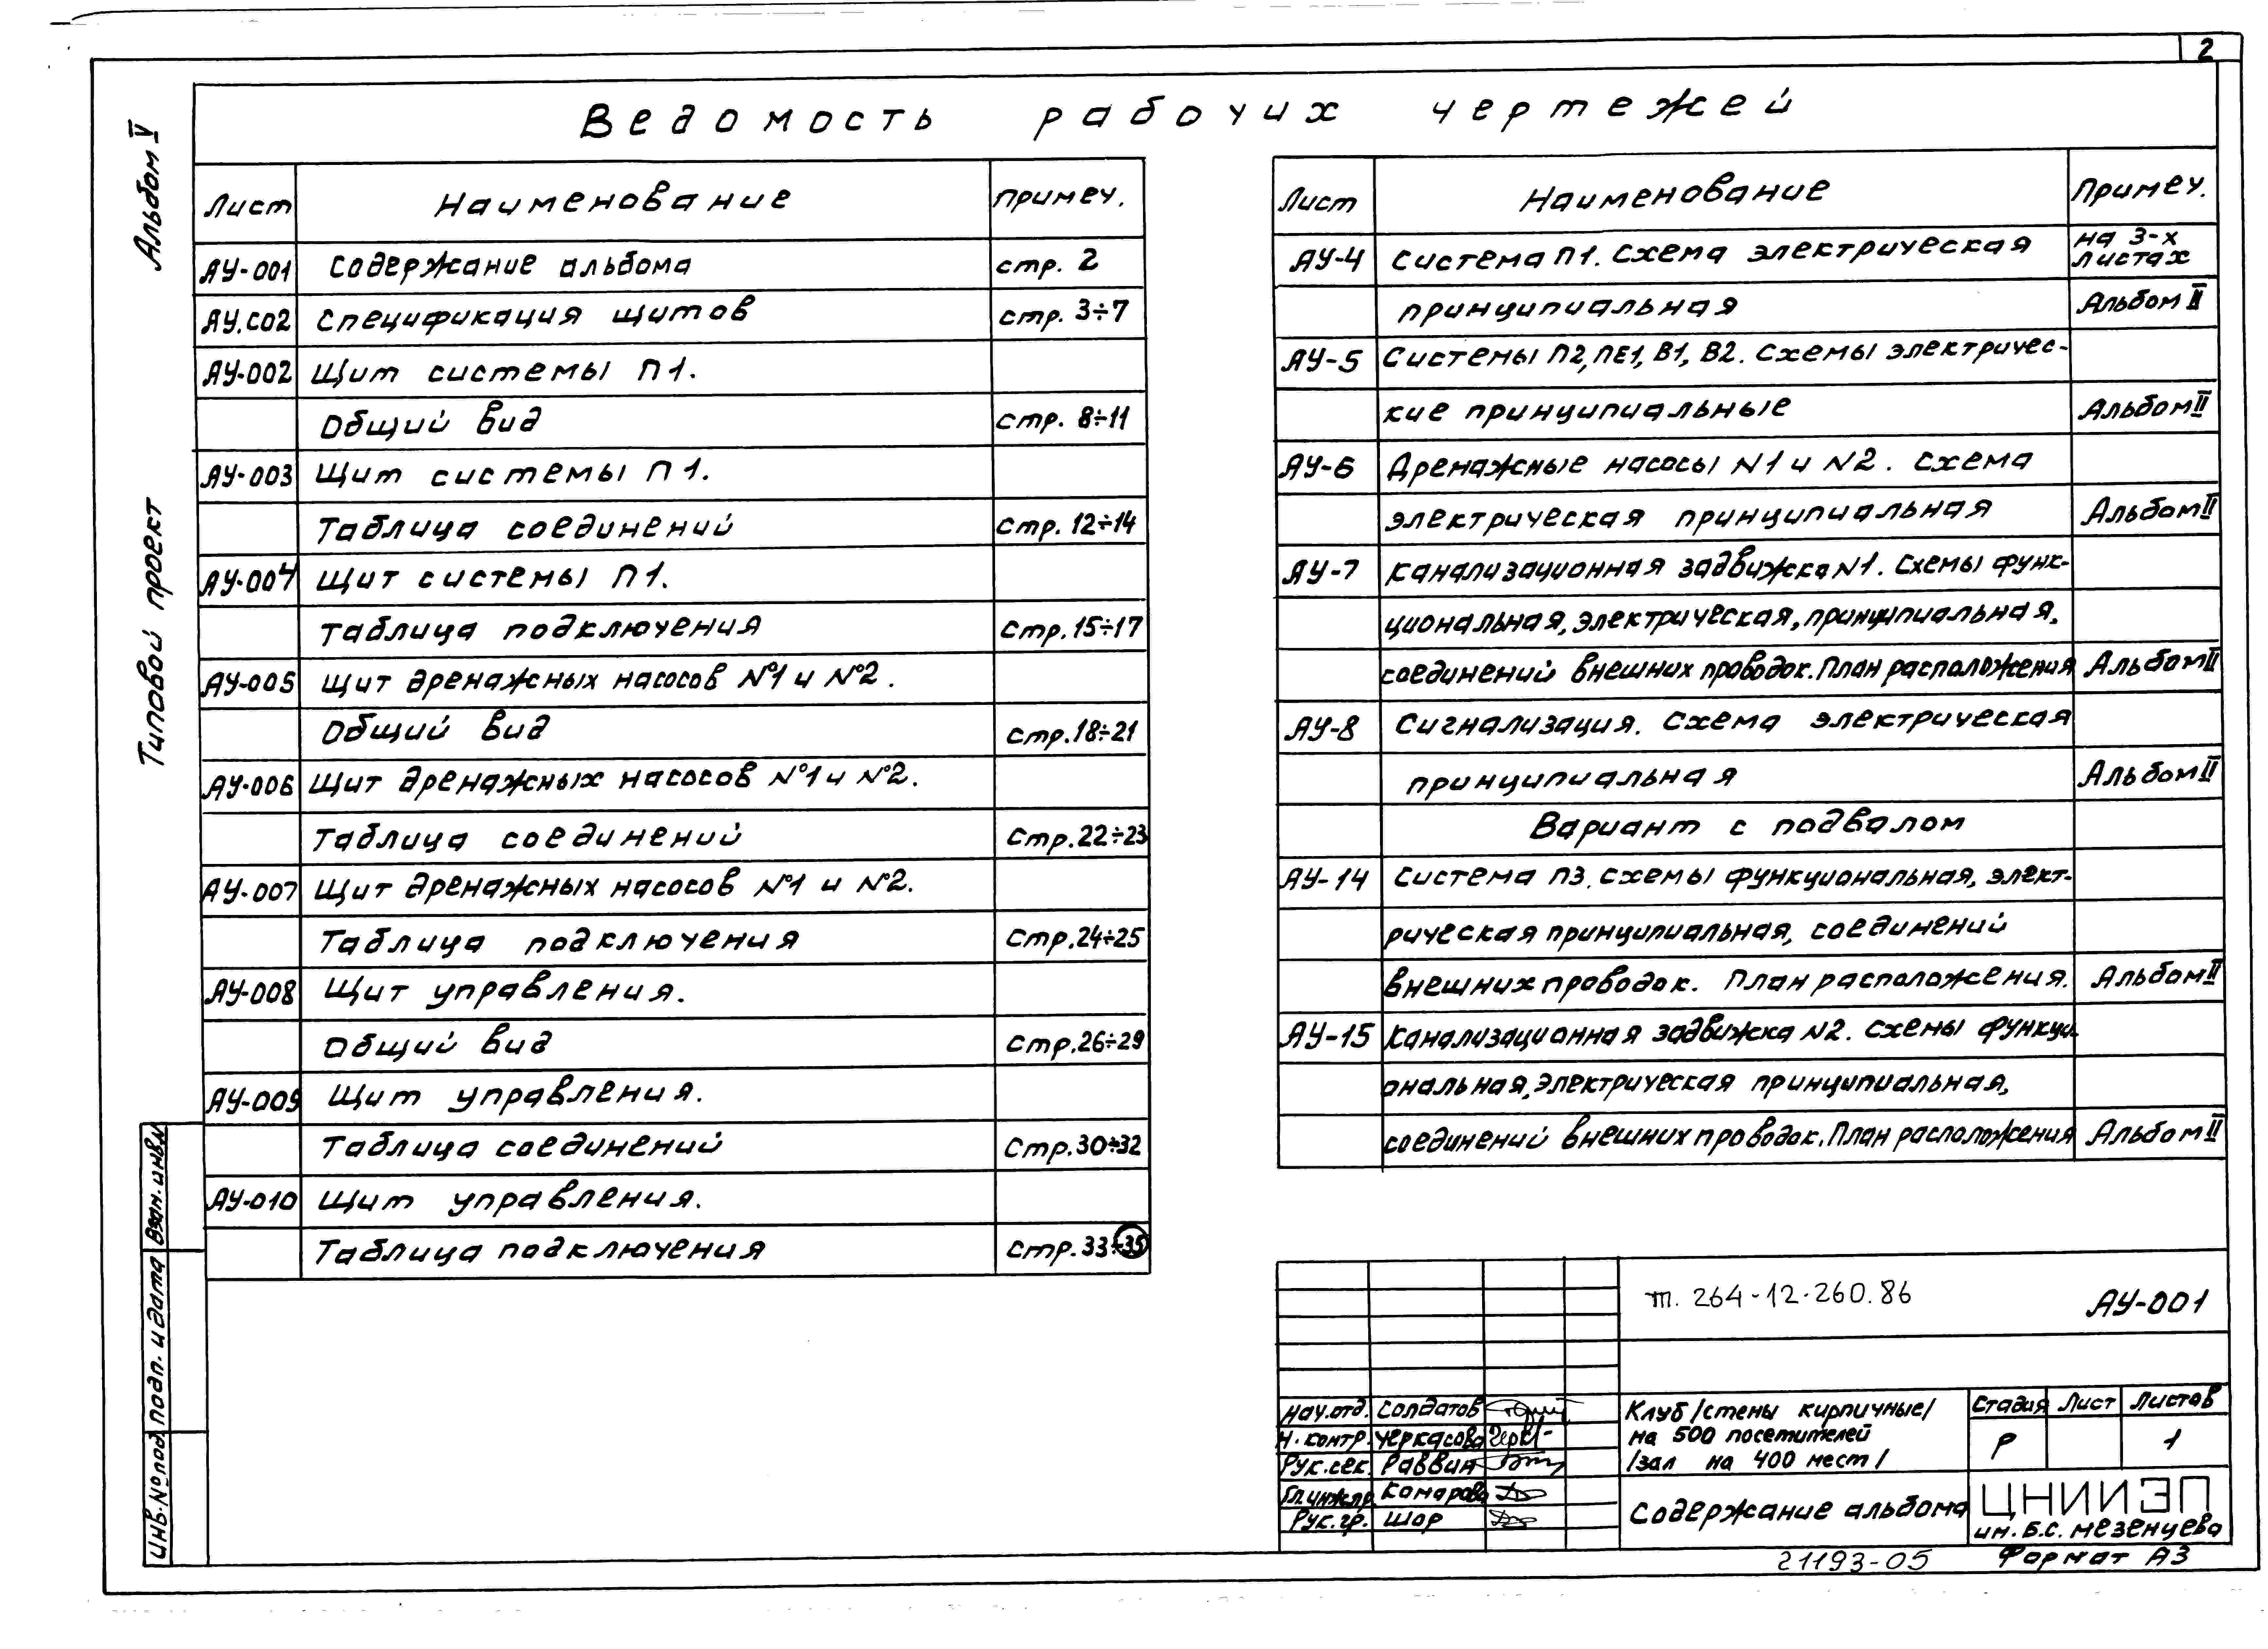 2
Альбом V
Типовой проект
Ведомость рабочих чертежей
Лист Наименование Примеч.
АУ-001 Содержание альбома стр. 2
АУ.СО2 Спецификация щитов стр. 3÷7
АУ-002 Щит системы П1.
Общий вид стр. 8÷11
АУ-003 Щит системы П1.
Таблица соединений стр. 12÷14
АУ-004 Щит системы П1.
Таблица подключения стр. 15÷17
АУ-005 Щит дренажных насосов №1 и №2.
Общий вид стр. 18÷21
АУ-006 Щит дренажных насосов №1 и №2.
Таблица соединений стр. 22÷23
АУ-007 Щит дренажных насосов №1 и №2.
Таблица подключения стр. 24÷25
АУ-008 Щит управления.
Общий вид стр. 26÷29
АУ-009 Щит управления.
Таблица соединений стр. 30÷32
АУ-010 Щит управления.
Таблица подключения стр. 33÷35
Лист Наименование Примеч.
АУ-4 Система П1. Схема электрическая на 3-х листах
принципиальная Альбом II
АУ-5 Системы П2, ПЕ1, В1, В2. Схемы электричес-
кие принципиальные Альбом II
АУ-6 Дренажные насосы N1 и N2. Схема
электрическая принципиальная Альбом II
АУ-7 Канализационная задвижка N1. Схемы функ-
циональная, электрическая, принципиальная,
соединений внешних проводок. План расположения Альбом II
АУ-8 Сигнализация. Схема электрическая
принципиальная Альбом II
Вариант с подвалом
АУ-14 Система П3. Схемы функциональная, элект-
рическая принципиальная, соединений
внешних проводок. План расположения. Альбом II
АУ-15 Канализационная задвижка N2. Схемы функци-
ональная, электрическая принципиальная,
соединений внешних проводок. План расположения Альбом II
т. 264-12-260.86 АУ-001
Нач.отд. Солдатов
Н.контр. Черкасова
Рук.сек. Раввин
Гл.инж.пр. Комарова
Рук.гр. Шор
Клуб /стены кирпичные/
на 500 посетителей
/зал на 400 мест/
Стадия Лист Листов
Р 1
Содержание альбома
ЦНИИЭП
им. Б.С. Мезенцева
21193-05 Формат А3
Взам. инв.N
Подп. и дата
Инв.№ под